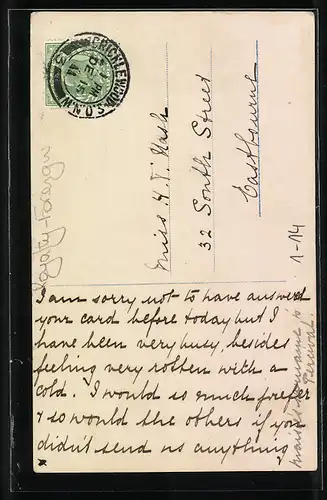 CRICKLEWOOD. S.O. N.W.
DE
11
Royalty-Foreign
Miss H. V. Nash
32 South Street
Eastbourne
1-14
I am sorry not to have answered
your card before today but I
have been very busy, besides
feeling very rotten with a
cold. I would so much prefer
& so would the others if you
didn't send us anything
x
surname is
Percival.